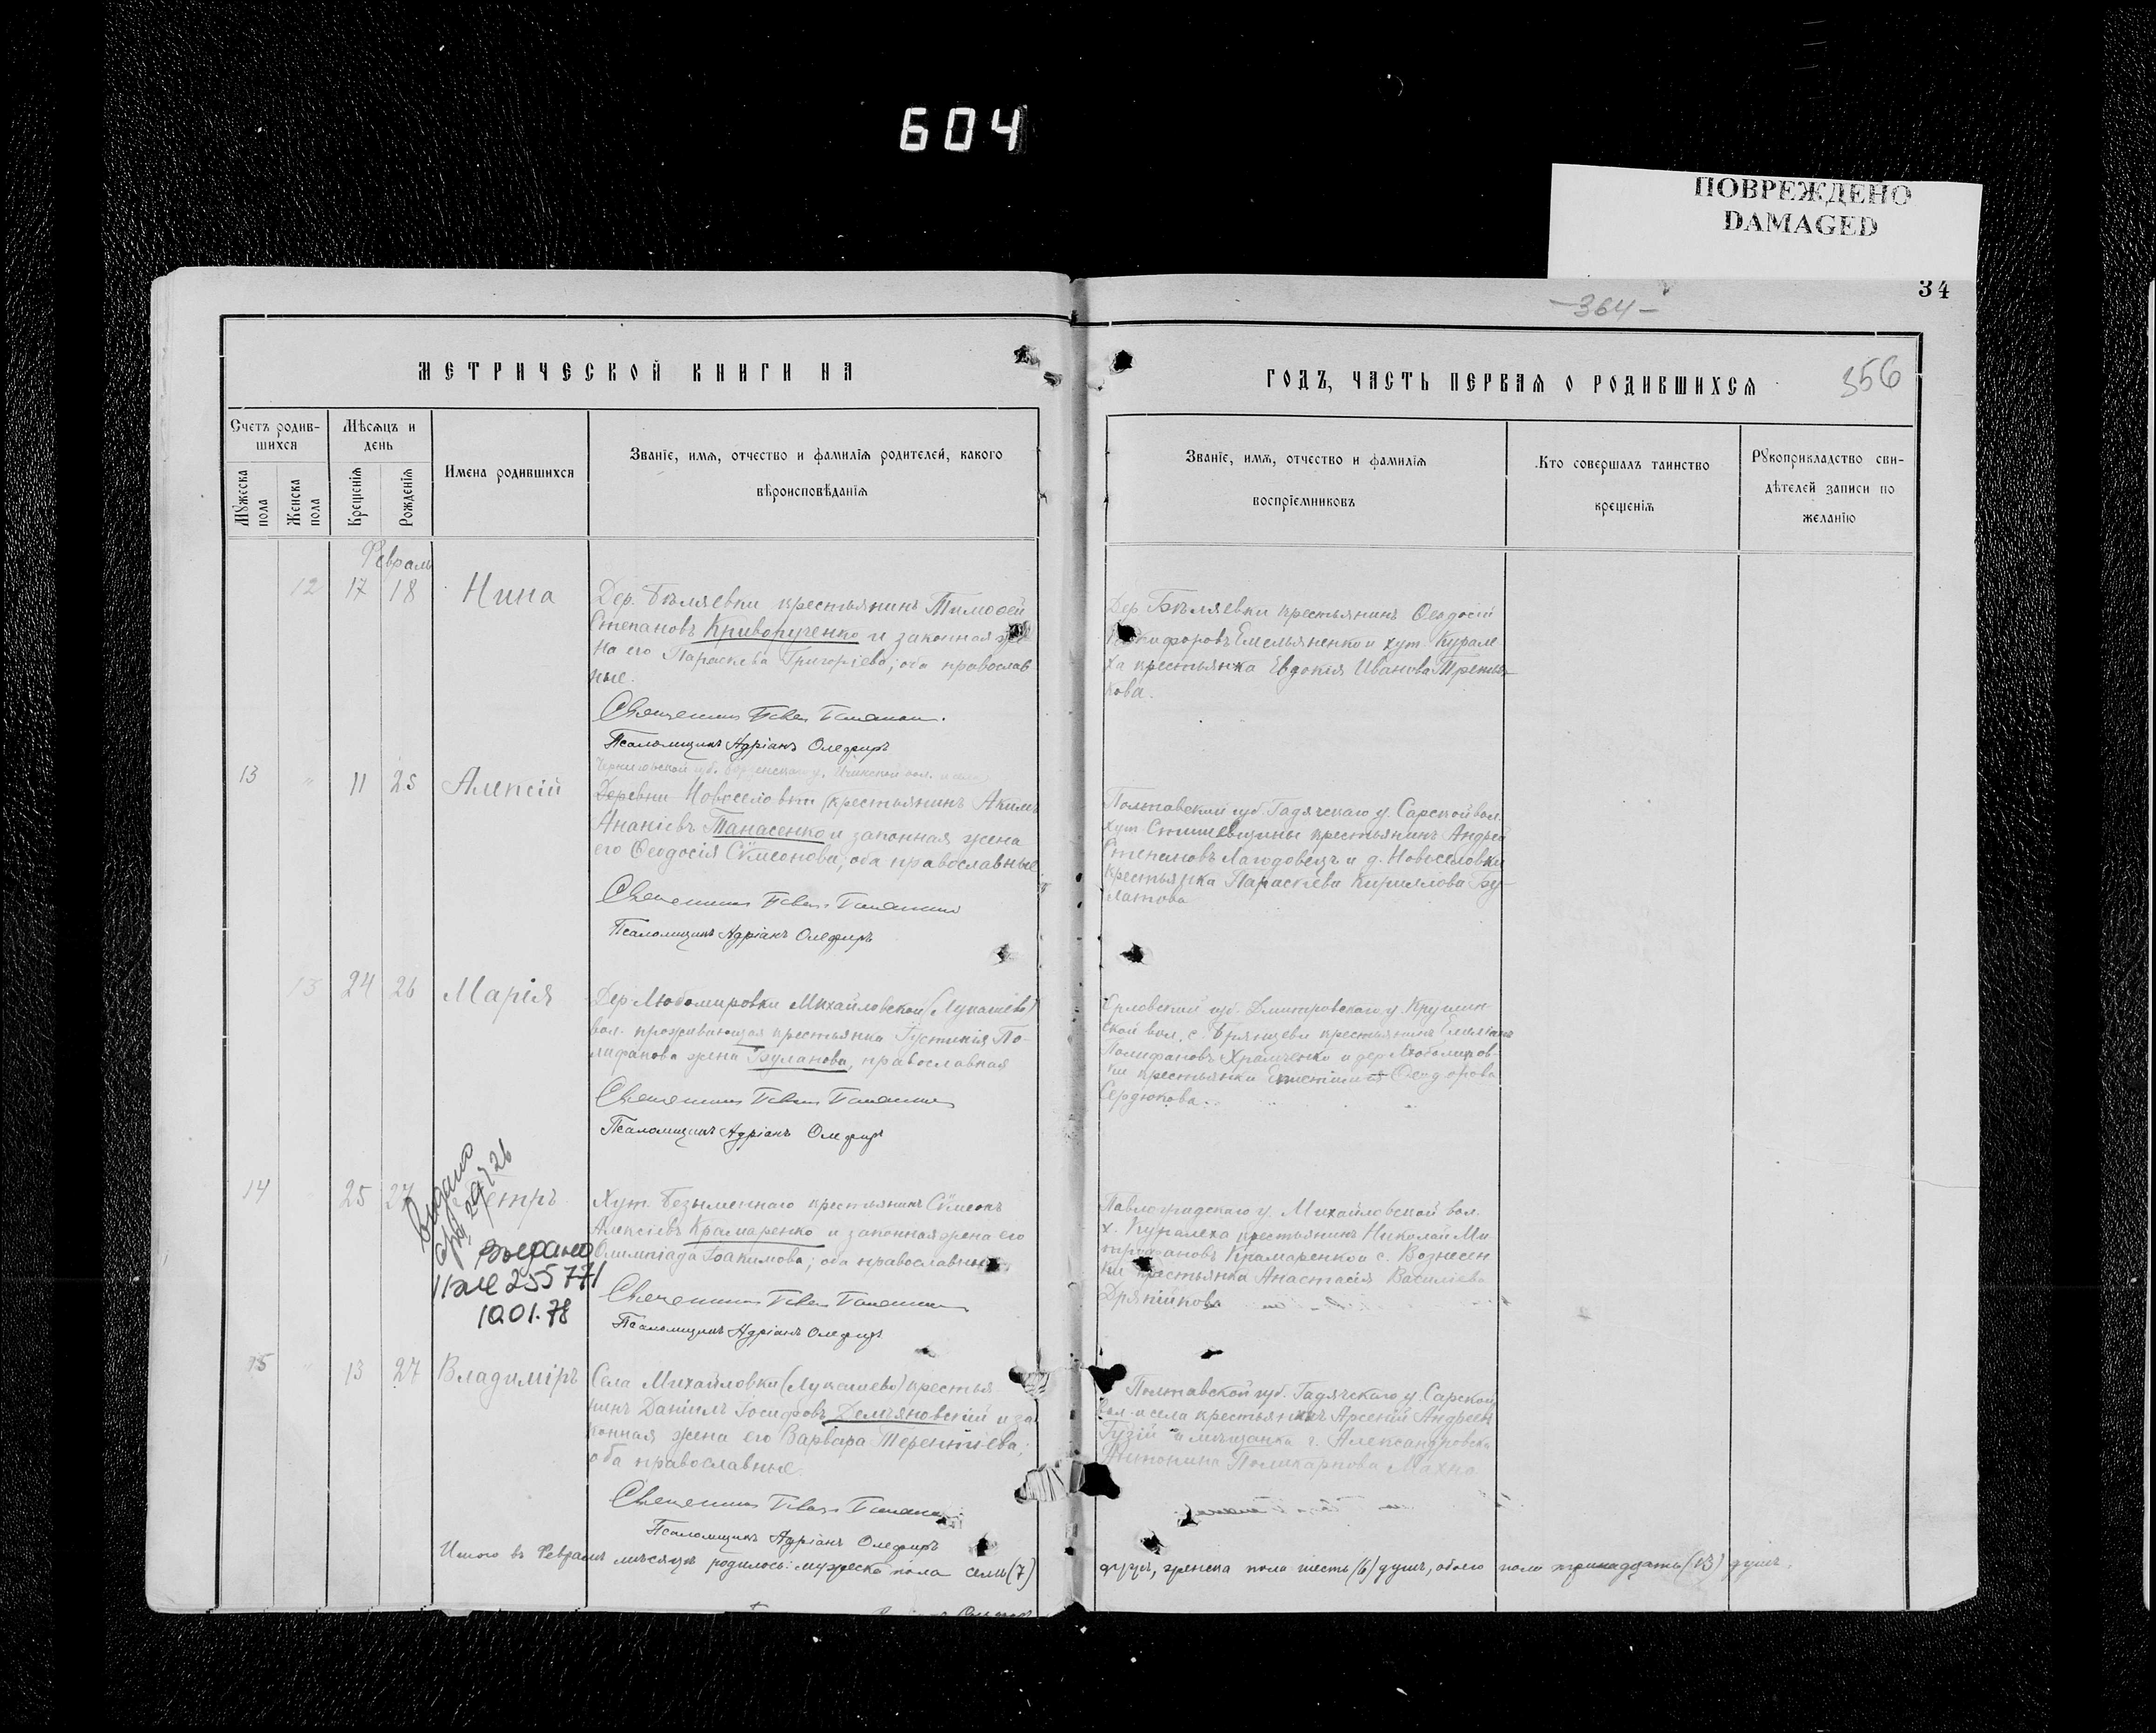 604
ПОВРЕЖДЕНО
DAMAGED
34
-364-
356
МЕТРИЧЕСКОЙ КНИГИ НА
ГОДЪ, ЧАСТЬ ПЕРВАЯ О РОДИВШИХСЯ
Счетъ родив-
шихся
Мѣсяцъ и
день
Имена родившихся
Званіе, имя, отчество и фамилія родителей, какого
вѣроисповѣданія
Званіе, имя, отчество и фамилія
воспріемниковъ
Кто совершалъ таинство
крещенія
Рукоприкладство сви-
дѣтелей записи по
желанію
Мужеска
пола
Женска
пола
Крещенія
Рожденія
Февраль
12 17 18 Нина
Дер. Бѣляевки крестьянинъ Тимофей
Степановъ Криворученко и законная же
на его Параскева Григоріева; оба православ
ные.
Священникъ Павелъ
Псаломщикъ Адріанъ Олефиръ
Дер. Бѣляевки крестьянинъ Ѳеодосій
Никифоровъ Емельяненко и хут. Курале
ха крестьянка Евдокія Иванова Третья
кова.
13 " 11 25 Алексій
Черниговской губ. Борзенскаго у. Ичнянской вол.
Деревни Новоселовки крестьянинъ Акимъ
Ананіевъ Танасенко и законная жена
его Ѳеодосія Сѵмеонова; оба православные
Священникъ Павелъ
Псаломщикъ Адріанъ Олефиръ
Полтавской губ. Гадячскаго у. Сарской вол.
хут. крестьянинъ Андрей
Степановъ Лагодовецъ и д. Новоселовки
крестьянка Параскева Кириллова Бу-
латова
13 24 26 Марія
Дер. Любомировки Михайловской (Лукашево)
вол. проживающая крестьянка Іустинія По-
лифанова жена Буланова, православная
Священникъ Павелъ
Псаломщикъ Адріанъ Олефиръ
Орловской губ. Дмитровскаго у.
ской вол. с. Брянцева крестьянинъ
Полифановъ Храмченко и дер. Любомиров-
ки крестьянка Ѳеодорова
Сердюкова.
14 25 27 Петръ
Видано
Выдано
II АЛЕ 255771
10.01.78
Хут. Безыменнаго крестьянинъ Сѵмеонъ
Алексіевъ Крамаренко и законная жена его
Олимпіада Іоакимова; оба православные
Священникъ Павелъ
Псаломщикъ Адріанъ Олефиръ
Павлоградскаго у. Михайловской вол.
х. Куралеха крестьянинъ Николай Ми
трофановъ Крамаренко и с. Вознесен
ки крестьянка Анастасія Василіева
15 " 13 27 Владиміръ
Села Михайловки (Лукашево) крестья
нинъ Даніилъ Іосифовъ Демьяновскій и за
конная жена его Варвара Терентіева;
оба православные.
Священникъ Павелъ
Псаломщикъ Адріанъ Олефиръ
Полтавской губ. Гадячскаго у. Сарской
вол. и села крестьянинъ Арсеній Андреев
Гузій и мѣщанка г. Александровска
Антонина Поликарпова Махно
Итого въ Февралѣ мѣсяцѣ родилось: мужеска пола семь (7)
душъ, женска пола шесть (6) душъ, обоего пола тринадцать (13) душъ.